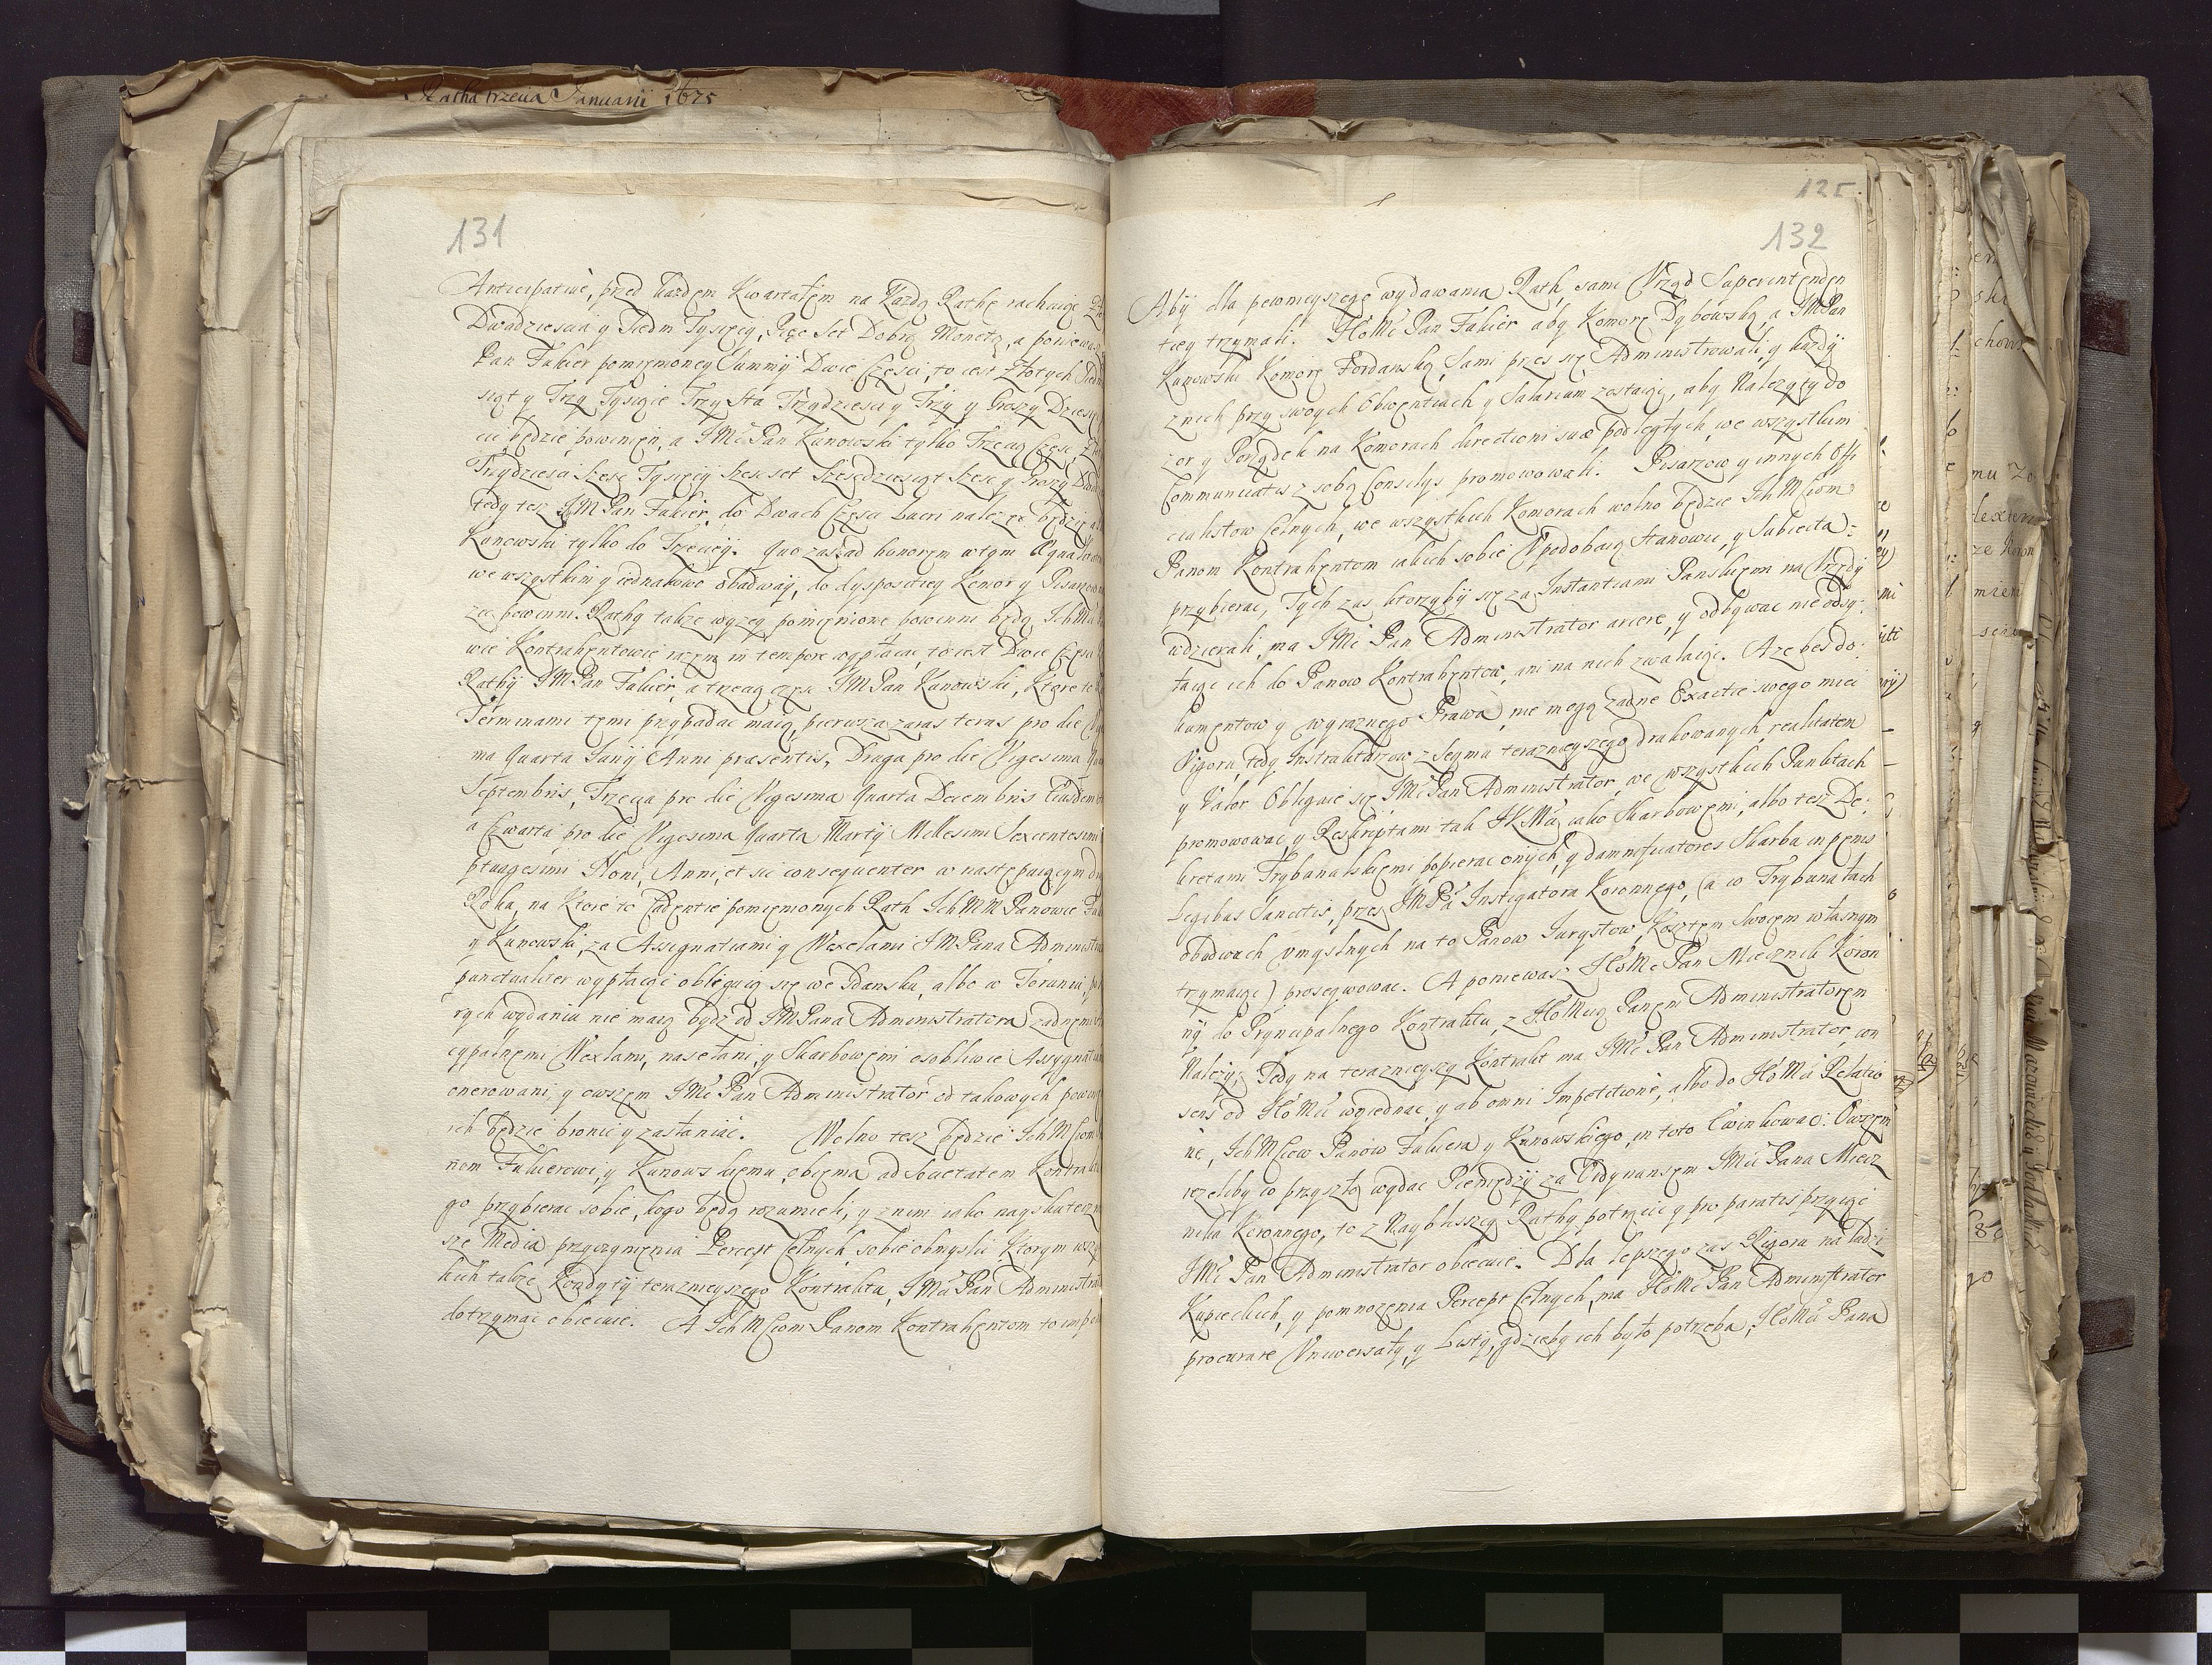 Ratha trzecia Januarii 1675
131
Anticipative, przed każdem Kwartałem na każdą Rathę rachuiąc
Dwadziescia y Siedm Tysięcy, Pięc Set Dobrą Monetą, a ponieważ
Pan Fakier pomięnioney Summy Dwie Części, to iest Złotych
siąt y Trzy Tysiące Trzy sta Trzydziesci y Trzy y Groszy Dziesię
cic będzie powinięn, a JMć Pan Kunowski tylko Trzecią Częsc
Trzydziesci szesc Tysięcy szesc set szescdziesiąt szesc y Groszy
tedy tesz JM Pan Fakier, do Dwuch Częsci Lucri nalezec będzie, a
Kunowski tylko do Trzeciey. Quo zaś ad honorem w tym
we wszystkim y iednakowo obadway, do dyspositiey Komor y Pisarzow
powinni. Rathy takze wyzey pomięnione powinni będą Ich
wie Kontrahentowie razem in tempore wypłacac, to iest Dwie Częsci
Rathy JM Pan Fakier, a trzecią częsc JM Pan Kunowski, Ktore to
Terminami temi przypadac maią, pierwsza zaras teras pro die
ma Quarta Junij Anni præsentis, Druga pro die Vigesima
Septembris, Trzecia pro die Vigesima Quarta Decembris Eiusdem
a Czwarta pro die Vigesima Quarta Martij Millesimi Sexcentesimi
ptuagesimi Noni, Anni, et sic consequenter w następuiącym
Roku, na Ktore to Cadentie pomięnionych Rath Ich MM Panowie
y Kunowski, za Assignatiami y Wexelami JM Pana Administra
punctualiter wypłacic obliguią się we Gdansku, albo w Toruniu,
rych wydaniu nie maią bydz od JM Pana Administratora zadnemi
cypalnemi Wexlami, nasełani, y Skarbowemi osobliwie Assygnatiami
onerowani, y owszem JMć Pan Administrator od takowych
ich będzie bronic y zastaniac. Wolno tesz będzie Ich Mciom
nom Fakierowi, y Kunowskiemu, obiema ad Societatem Kontraktu
go przybierac sobie, kogo będą rozumieli, y z nimi iako nayskutecz
sze Media przyczynięnia Percept Celnych sobie obmyslic Ktorym
kich takze Kondytij teraznieyszego Kontraktu, JMć Pan Administra
dotrzymac obiecuie. A Ich Mciom Panom Kontrahentom to
125
132
Aby dla pewnieyszego wydawania Rath, sami Urząd Superintenden
tiey trzymali. JMć Pan Fakier aby Komorę Dybowską, a JM Pan
Kunowski Komorę Fordanską, Sami przes się Administrowali, y kazdy
z nich przy swoych Obwentiach y Salarium zostaiąc, aby Nalezyty do
zor y Porządek na Komorach directioni suæ podległych, we wszystkim
Communicatis z sobą Consilijs promowowali. Pisarzow y innych Offi
cialistow Celnych, we wszystkich Komorach wolno będzie Ich Mciom
Panom Kontrahentom iakich sobie Upodobaią stanowic, y Subiecta
przybierac, Tych zas ktorzyby się za Instantiami Panskiemi na Urzędy
wdzierali, ma JMć Pan Administrator arcere, y odbywac nie odsy:
łaiąc ich do Panow Kontrahentow, ani na nich zwalaiąc. A ze bes do:
kumentow y wyraznego Prawa, nie mogą zadne Exactie swego miec
Vigoru, tedy Instruktarzow z Seymu teraznieyszego drukowanych, realitatem
y Valor Obliguie się JMć Pan Administrator, we wszystkich Punktach
promowowac, y Reskriptami tak JKMci, iako Skarbowemi, albo tesz De:
kretami Trybunalskiemi popierac onych, y damnificatores Skarbu in pœnis
Legibus Sancitis, przes JM Pa Instigatora Koronnego, (a w Trybunałach
obudwuch umyslnych na to Panow Jurystow, Kosztem Swoiem własnym
trzymaiąc) proseqwowac. A poniewasz JMć Pan Miecznik Koron
ny do Pryncipalnego Kontraktu, z JMcią Panem Administratorem
Nalezy, Tedy na teraznieyszy Kontrakt ma JMć Pan Administrator, con
sens od JMci wyiednac, y ab omni Impetitione, albo do JMci Relatio
ne, Ich Mciow Panow Fakiera y Kunowskiego, in toto Ewinkowac. Owszem
iezeliby co przyszło wydac Pieniędzy za Ordynansem JMci Pana Miecz
nika Koronnego, to z Naybliszszey Rathy potrącic y pro paratis przyiąc
JMć Pan Administrator obiecuie. Dla lepszego zas Rigoru na ludzi
Kupieckich, y pomnozenia Percept Celnych, ma JMć Pan Administrator
procurare Uniwersały, y Listy, gdzieby ich było potrzeba, JMci Pana